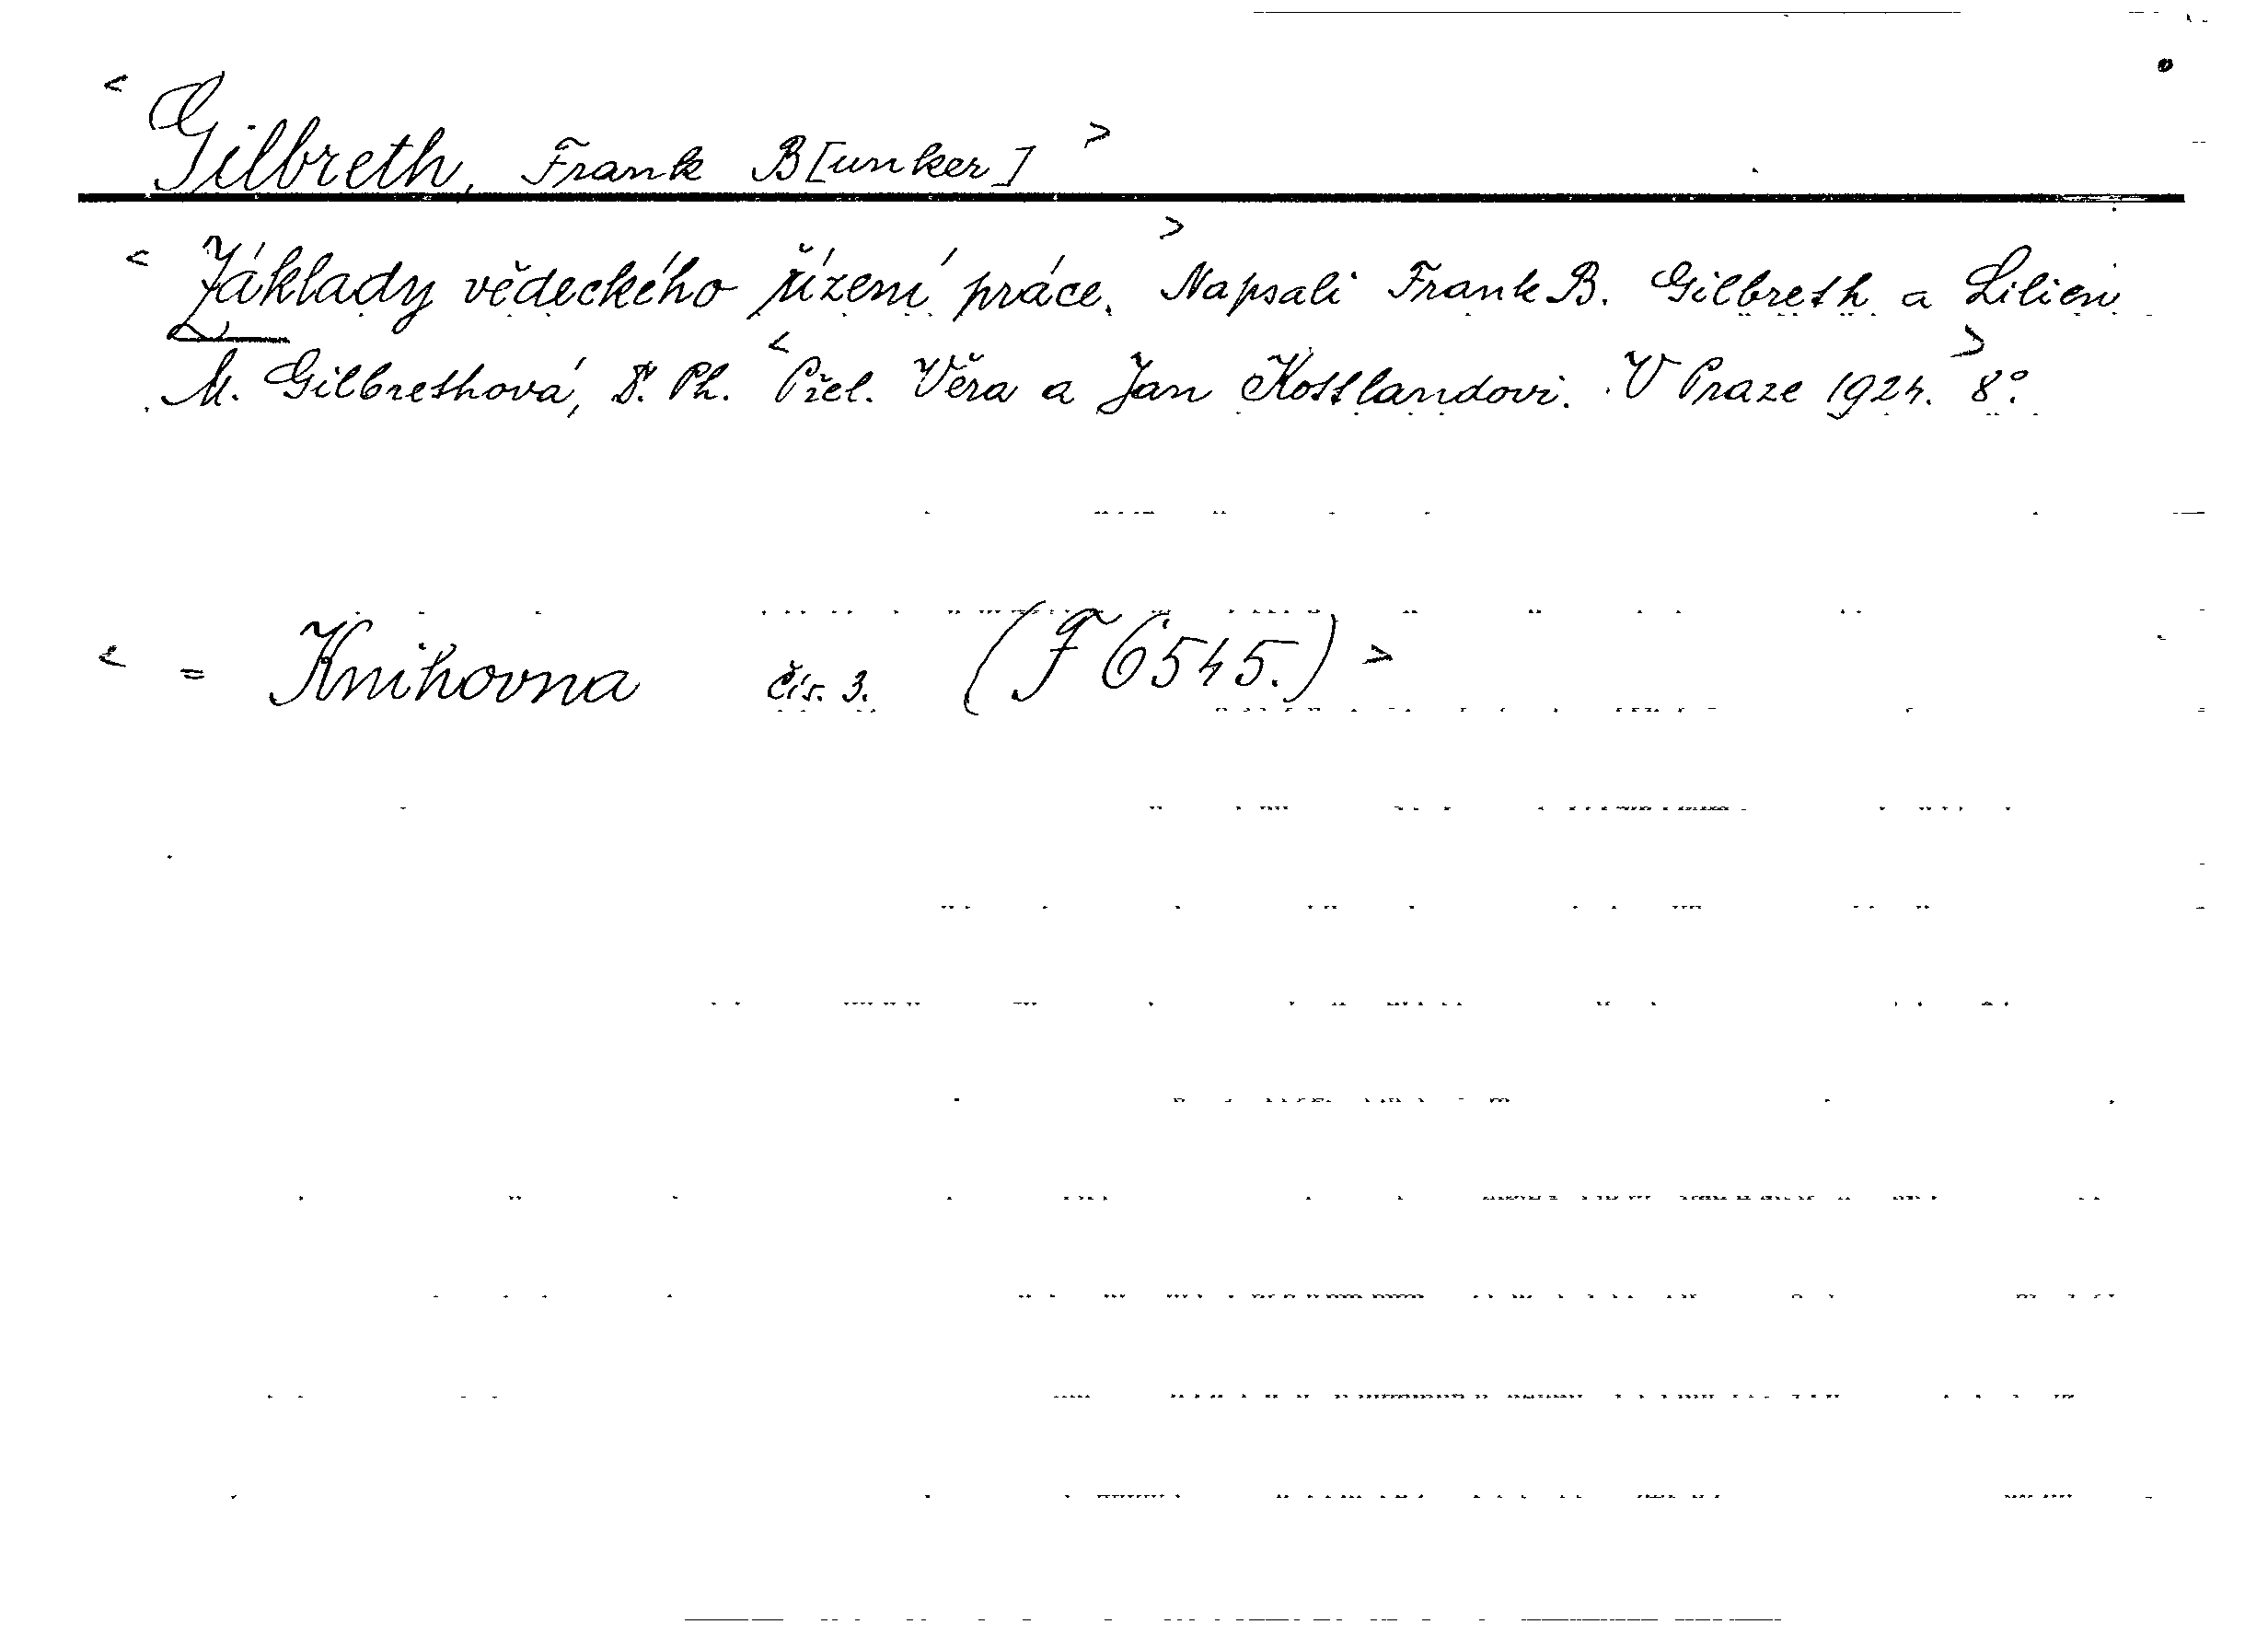 < Gilbreth, Frank B[unker] >
< Základy vědeckého řízení práce. > Napsali Frank B. Gilbreth a Lilien
M. Gilbrethová, D. Ph. < Přel. Věra a Jan Kosslandovi. V Praze 1924. > 8°.
< = Knihovna čís. 3. (F 6545.) >